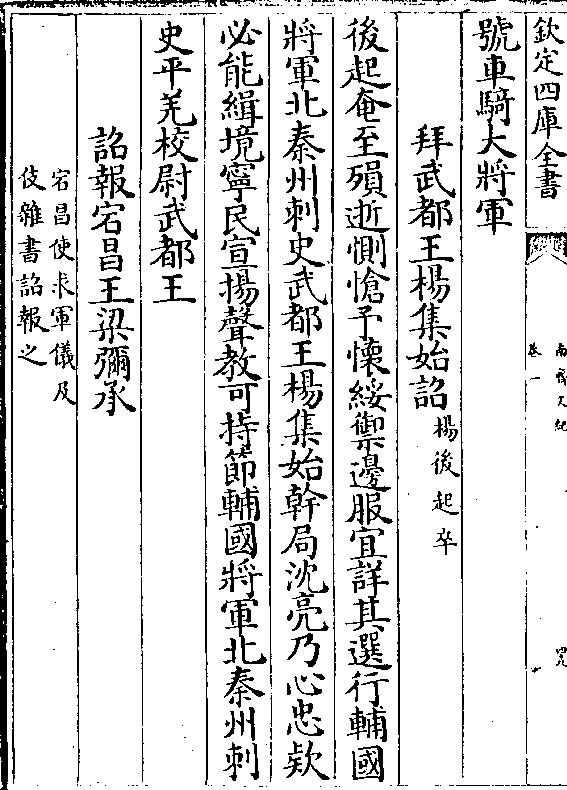 欽定四庫全書
南齊文紀
卷一
號車騎大將軍
拜武都王楊集始詔
楊後起卒
後起奄至殞逝惻愴予懷綏禦邊服宜詳其選行輔國
將軍北秦州刺史武都王楊集始幹局沈亮乃心忠款
必能緝境寧民宣揚聲教可持節輔國將軍北秦州刺
史平羌校尉武都王
詔報宕昌王梁彌承
宕昌使求軍儀及
伎雜書詔報之